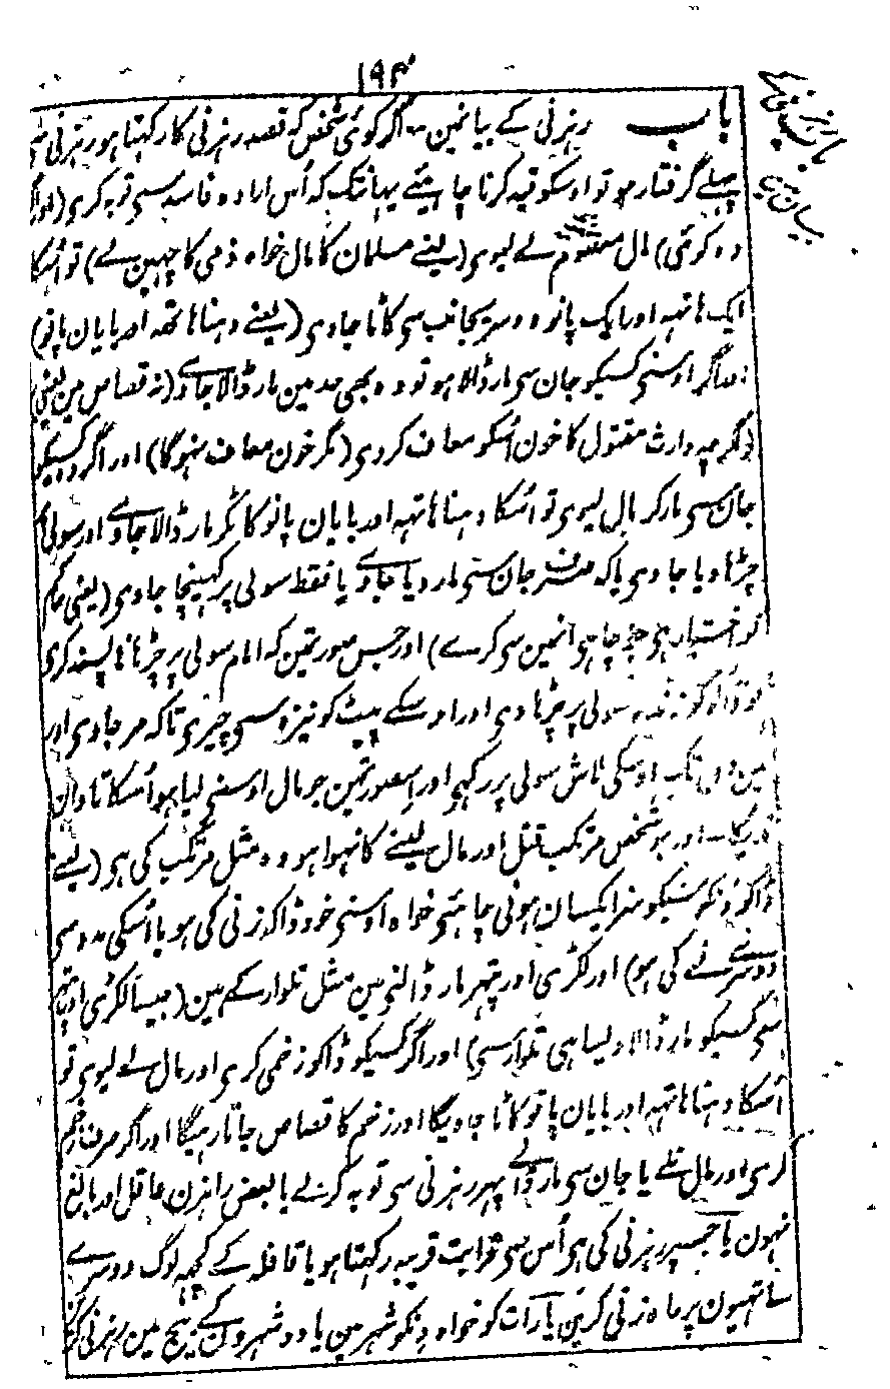 ۱۹۴
باب رہزنی کے بیانمین۔ اگر کوئی شخص کہ قصد رہزنی کا رکہتا ہو رہزنی سی
پہلے گرفتار ہو تو اوسکو قید کرنا چاہیئے یہانتک کہ اُس ارادہ فاسد سی توبہ کری (اور اگر
وہ کوئی) مال معصوم لے لیوی (یعنے مسلمان کا مال خواہ ذمی کا چہین لے) تو اُسکا
ایک ہاتہہ اور ایک پانو دوسریجانب سی کاٹا جاوی (یعنے دہنا ہاتھہ اور بایان پانو)
اور اگر اوسنی کسیکو جان سی مار ڈالا ہو تو وہ بھی حد مین مار ڈالا جاوے (نہ قصاص مین یعنی)
اگرچہ وارث مقتول کا خون اُسکو معاف کردی (مگر خون معاف نہوگا) اور اگر وہ کسیکو
جان سی مار کر مال لیوی تو اُسکا دہنا ہاتہہ اور بایان پانو کاٹکر مار ڈالا جاوے اور سولی
چڑہا دیا جاوی یا کہ صرف جان سی مار دیا جاوے یا فقط سولی پر کہینچا جاوی (یعنی حاکم
کو اختیار ہی جو چاہی انمین سی کرے) اور جس صورتمین کہ امام سولی پر چڑہانا پسند کری
تو ڈاکو کو زندہ سولی پر چڑہاوی اور اوسکے پیٹ کو نیزہ سی چیری تاکہ مر جاوی اور
تین دن تک اوسکی لاش سولی پر رکہی اور اس صورتمین جو مال اوسنی لیا ہو اُسکا تاوان
ندیگا۔ اور جو شخص مرتکب قتل اور مال لینے کا نہوا ہو وہ مثل مرتکب کی ہی (یعنے
ڈاکوؤنکو سبکو سزا یکسان ہونی چاہئی خواہ اوسنی خود ڈاکہ زنی کی ہو یا اُسکی مدد سی
دوسرے نے کی ہو) اور لکڑی اور پتہر مار ڈالنی مین مثل تلوار کے ہین (جیسا لکڑی اور پتہر
سی کسیکو مار ڈالا ویسا ہی تلوار سی) اور اگر کسیکو ڈاکو زخمی کری اور مال لے لیوی تو
اُسکا دہنا ہاتہہ اور بایان پانو کاٹا جاویگا اور زخم کا قصاص جاتا رہیگا اور اگر صرف زخم
کری اور مال نلے یا جان سی مار ڈالے پہر رہزنی سی توبہ کرلے یا بعض راہزن عاقل اور بالغ
نہون یا جسپر رہزنی کی ہی اُس سی قرابت قریبہ رکہتا ہو یا قافلہ کے کچہہ لوگ دوسرے
ساتہیون پر راہ زنی کرین یا رات کو خواہ دنکو شہر مین یا دو شہرون کے بیچ مین رہزنی کری